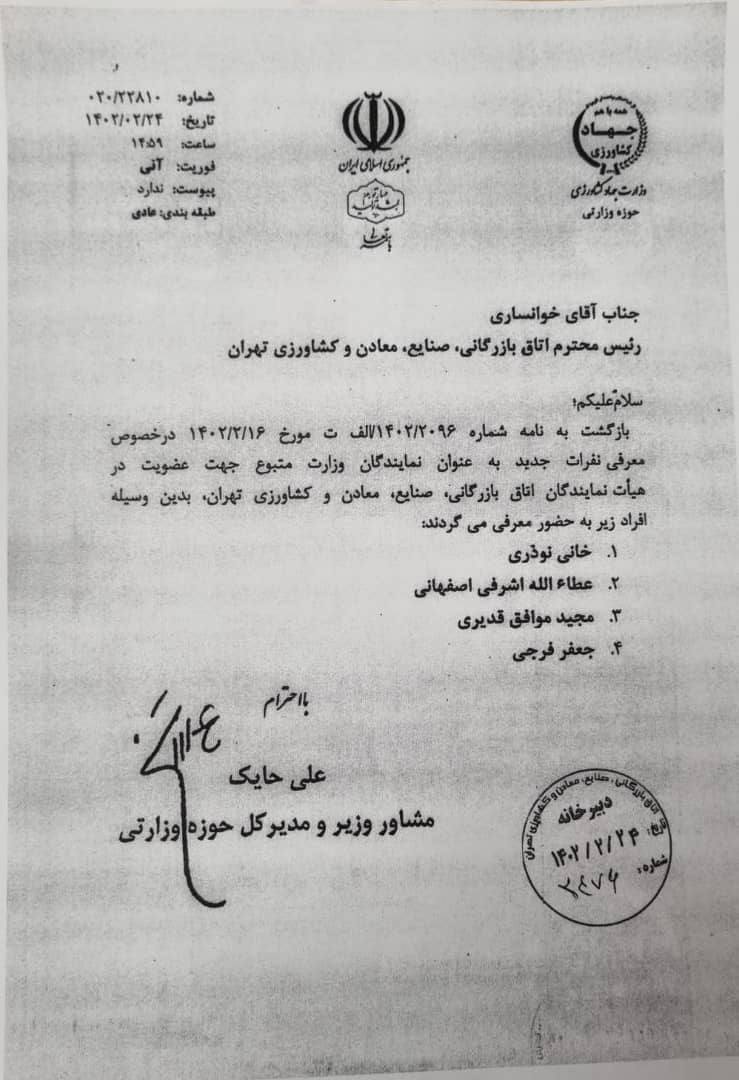 شماره: ۰۲۰/۲۲۸۱۰
تاریخ: ۱۴۰۲/۰۲/۲۴
ساعت: ۱۴:۵۹
فوریت: آنی
پیوست: ندارد
طبقه بندی: عادی
جمهوری اسلامی ایران
باسمه تعالی
همه با هم
جهاد
کشاورزی
وزارت جهاد کشاورزی
حوزه وزارتی
جناب آقای خوانساری
رئیس محترم اتاق بازرگانی، صنایع، معادن و کشاورزی تهران
سلام علیکم؛
بازگشت به نامه شماره ۱۴۰۲/۲۰۹۶/الف ت مورخ ۱۴۰۲/۲/۱۶ درخصوص
معرفی نفرات جدید به عنوان نمایندگان وزارت متبوع جهت عضویت در
هیأت نمایندگان اتاق بازرگانی، صنایع، معادن و کشاورزی تهران، بدین وسیله
افراد زیر به حضور معرفی می گردند:
۱. خانی نوذری
۲. عطاء الله اشرفی اصفهانی
۳. مجید موافق قدیری
۴. جعفر فرجی
بااحترام
علی حایک
مشاور وزیر و مدیرکل حوزه وزارتی
اتاق بازرگانی، صنایع، معادن و کشاورزی تهران
دبیرخانه
تاریخ: ۱۴۰۲/۲/۲۴
شماره: